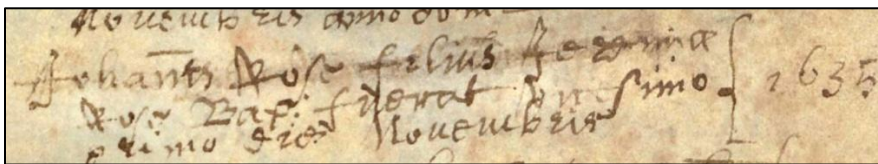 Novembris anno dom
Johanēs Rose filius
Rose Bap: fuerat simo 1635
primo die Novembris